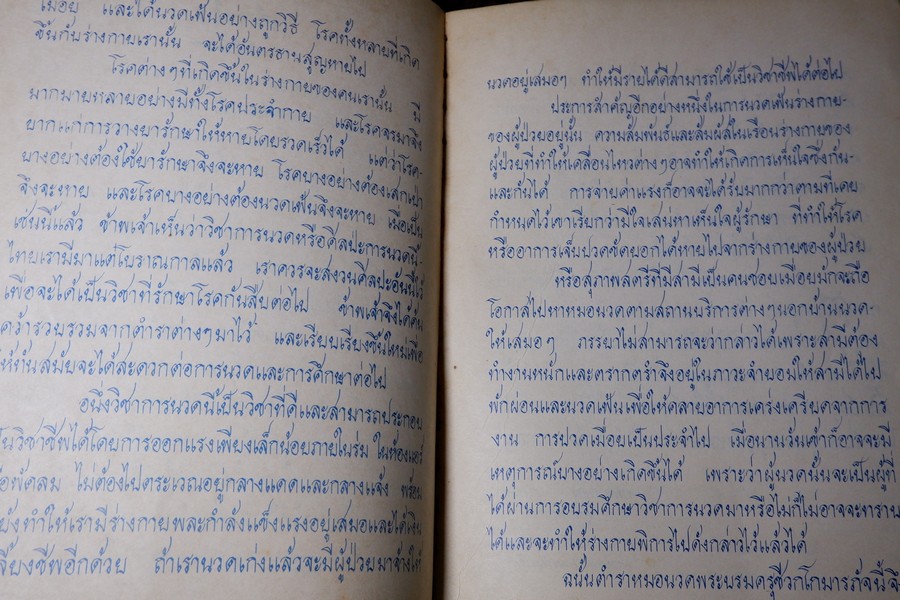 เมื่อย และได้นวดเฟ้นอย่างถูกวิธี โรคทั้งหลายที่เกิด
ขึ้นกับร่างกายเรานั้น จะได้อันตรธานสูญหายไป
โรคต่างๆที่เกิดขึ้นในร่างกายของคนเรานั้น มี
มากมายหลายอย่างมีทั้งโรคประจำกาย และโรคจรมาจึง
ยากแก่การวางยารักษาให้หายโดยรวดเร็วได้ แต่ว่าโรค-
บางอย่างต้องใช้ยารักษาจึงจะหาย โรคบางอย่างต้องเสกเป่า
จึงจะหาย และโรคบางอย่างต้องนวดเฟ้นจึงจะหาย เมื่อเป็น
เช่นนี้แล้ว ข้าพเจ้าเห็นว่าวิชาการนวดหรือศิลปะการนวดนี้-
ไทยเรามีมาแต่โบราณกาลแล้ว เราควรจะสงวนศิลปะอันนี้ไว้
เพื่อจะได้เป็นวิชาที่รักษาโรคกันสืบต่อไป ข้าพเจ้าจึงได้ค้น
คว้ารวบรวมจากตำราต่างๆมาไว้ และเรียบเรียงขึ้นใหม่เพื่อ
ให้ทันสมัยจะได้สะดวกต่อการนวดและการศึกษาต่อไป
อนึ่งวิชาการนวดนี้เป็นวิชาที่ดีและสามารถประกอบ
เป็นวิชาชีพได้โดยการออกแรงเพียงเล็กน้อยภายในร่ม ในห้องแอร์
หรือพัดลม ไม่ต้องไปตระเวณอยู่กลางแดดและกลางแจ้ง พร้อม
ยังทำให้เรามีร่างกายพละกำลังแข็งแรงอยู่เสมอและได้เงิน
เลี้ยงชีพอีกด้วย ถ้าเรานวดเก่งแล้วจะมีผู้ป่วยมาจ้างให้
นวดอยู่เสมอๆ ทำให้มีรายได้ดีสามารถใช้เป็นวิชาชีพได้ต่อไป
ประการสำคัญอีกอย่างหนึ่งในการนวดเฟ้นร่างกาย-
ของผู้ป่วยอยู่นั้น ความสัมพันธ์และสัมผัสในเรือนร่างกายของ
ผู้ป่วยที่ทำให้เคลื่อนไหวต่างๆอาจทำให้เกิดการเห็นใจซึ่งกัน-
และกันได้ การจ่ายค่าแรงก็อาจจะได้รับมากกว่าตามที่เคย
กำหนดไว้เขาเรียกว่ามีใจเสน่หาเห็นใจผู้รักษา ที่ทำให้โรค
หรืออาการเจ็บปวดขัดยอกได้หายไปจากร่างกายของผู้ป่วย
หรือสุภาพสตรีที่มีสามีเป็นคนชอบเมื่อยมักจะถือ
โอกาสไปหาหมอนวดตามสถานบริการต่างๆนอกบ้านนวด-
ให้เสมอๆ ภรรยาไม่สามารถจะว่ากล่าวได้เพราะสามีต้อง
ทำงานหนักและตรากตรำจึงอยู่ในภาวะจำยอมให้สามีได้ไป
พักผ่อนและนวดเฟ้นเพื่อให้คลายอาการเคร่งเครียดจากการ
งาน การปวดเมื่อยเป็นประจำไป เมื่อนานวันเข้าก็อาจจะมี
เหตุการณ์บางอย่างเกิดขึ้นได้ เพราะว่าผู้นวดนั้นจะเป็นผู้ที่
ได้ผ่านการอบรมศึกษาวิชาการนวดมาหรือไม่ก็ไม่อาจจะทราบ
ได้และจะทำให้ร่างกายพิการไปดังกล่าวไว้แล้วได้
ฉนั้นตำราหมอนวดพระบรมครูชีวกโกมารภัจนี้จึ